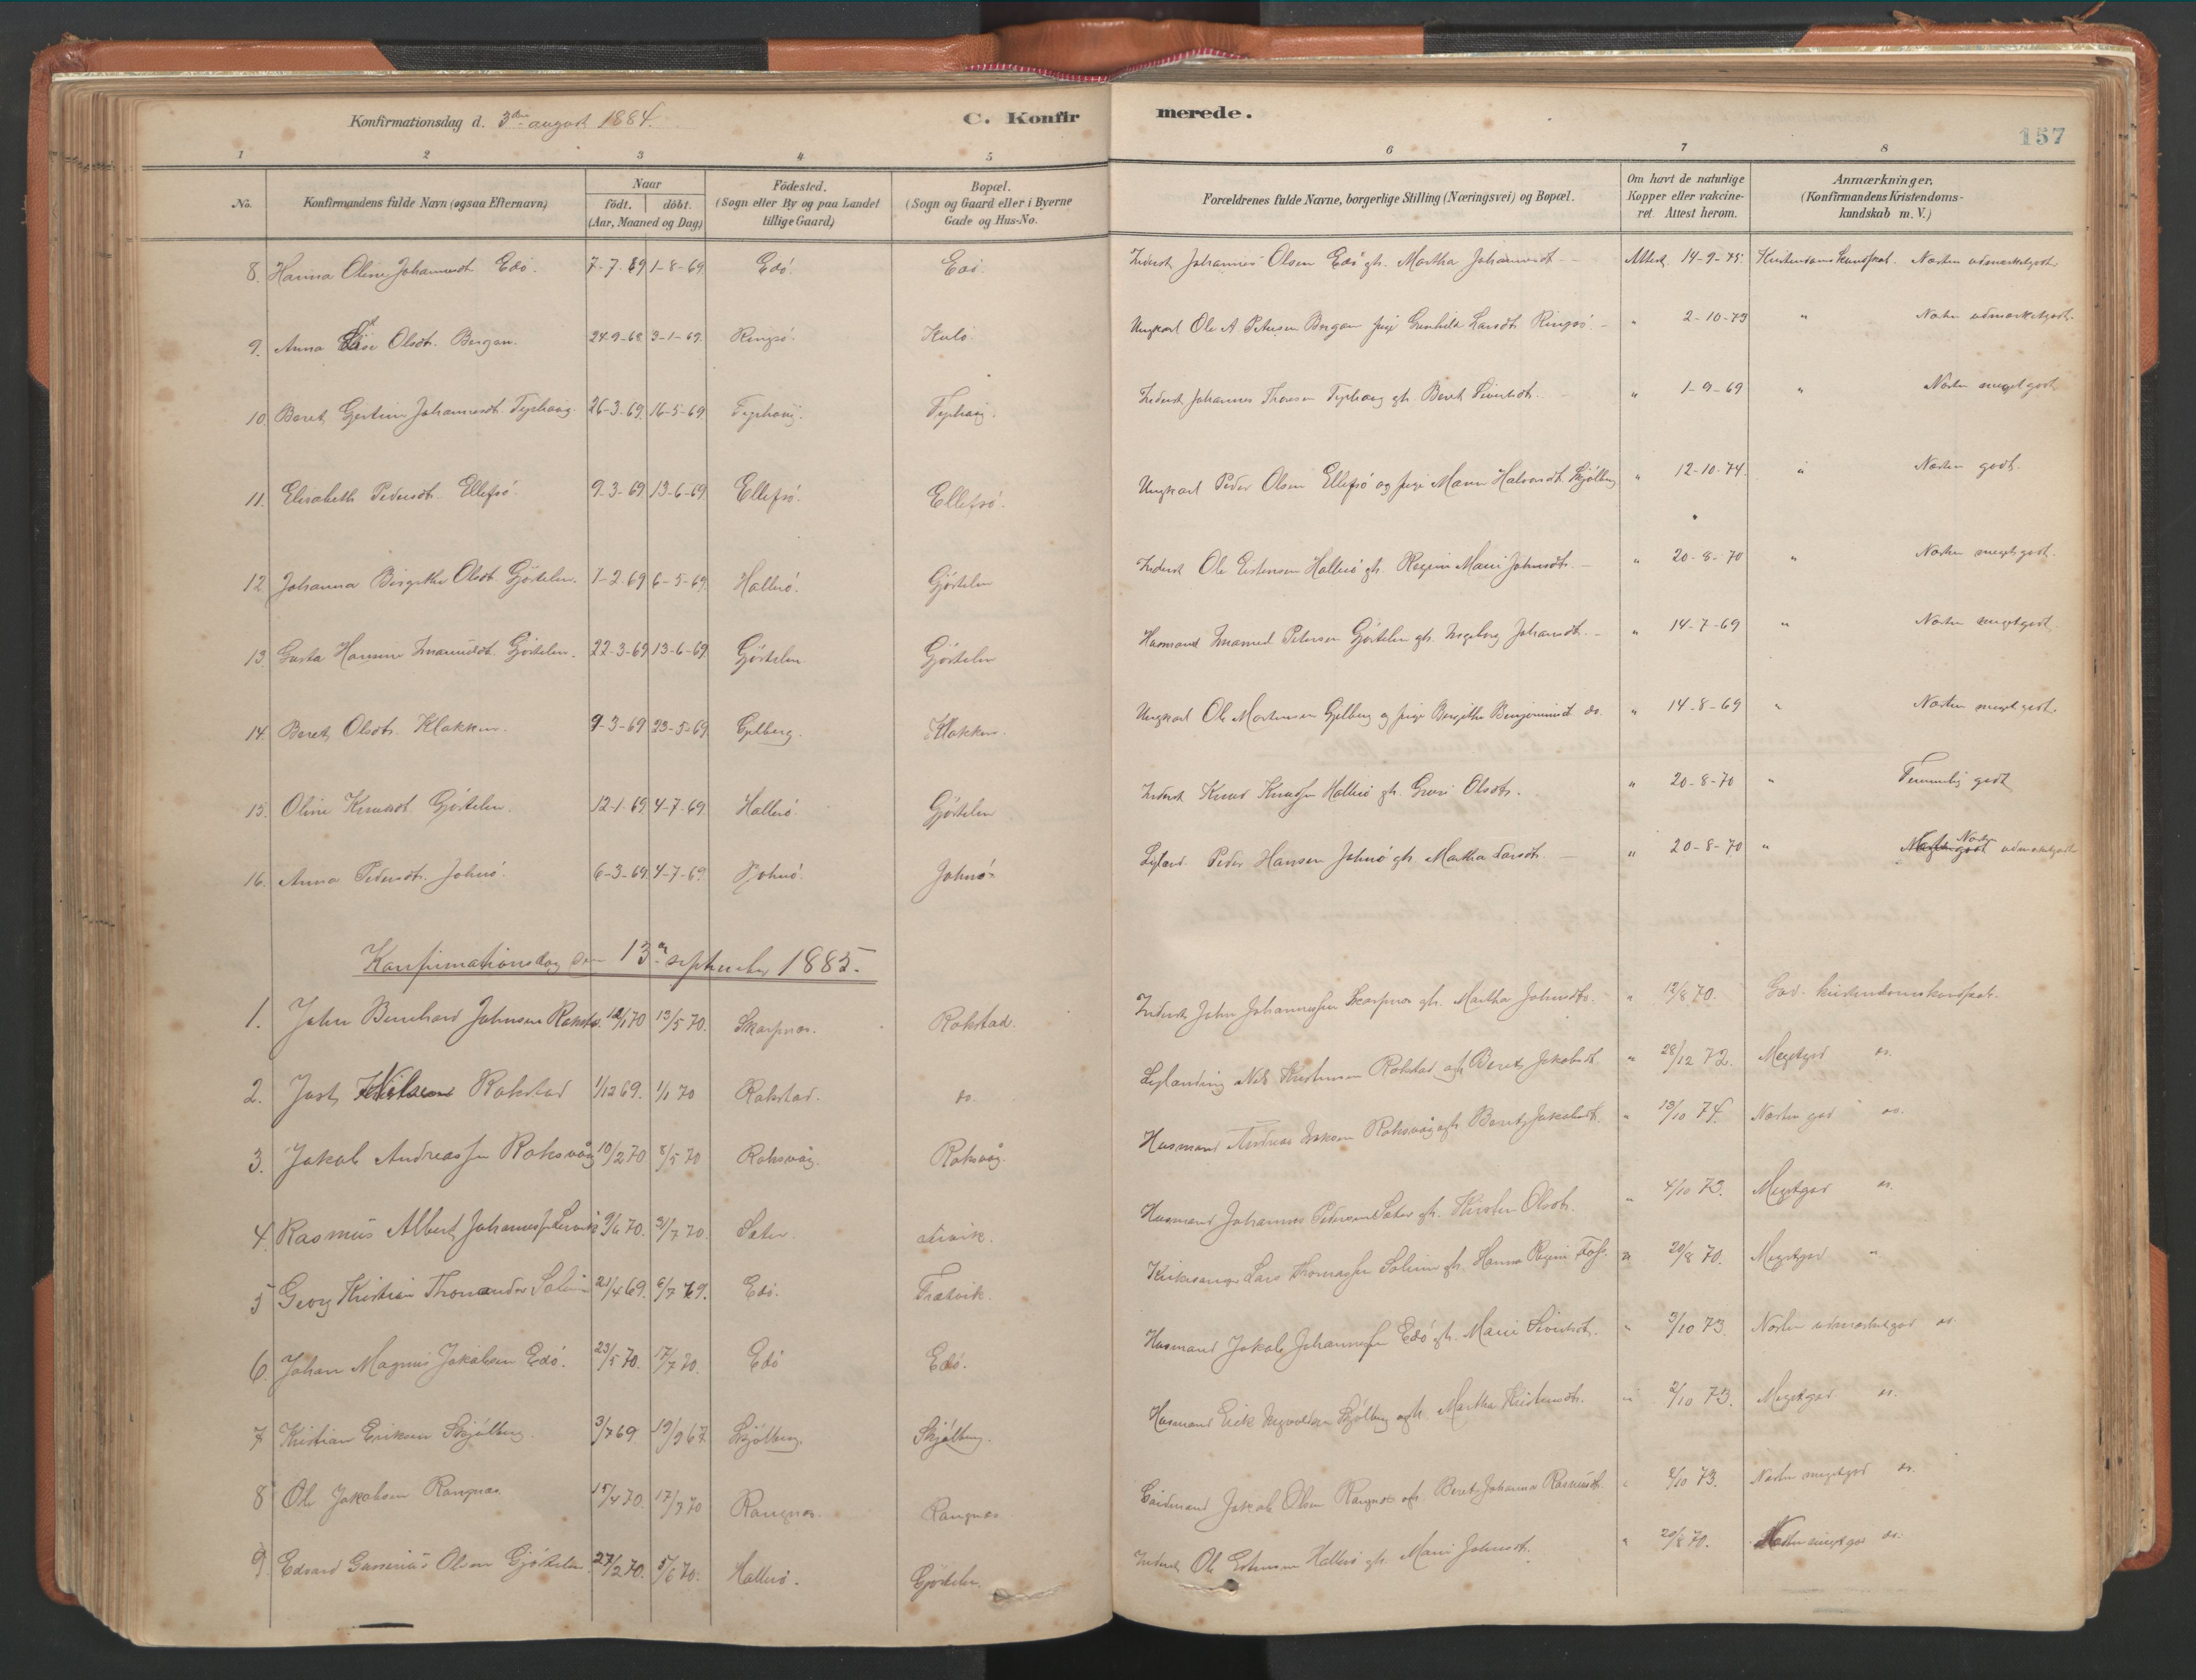 Konfirmationsdag d. 3die august 1884.
C. Konfirmerede.
157
1 2 3 4 5 6 7 8
No.
Konfirmandens fulde Navn (ogsaa Efternavn)
Naar
födt. döbt.
(Aar, Maaned og Dag)
Födested.
(Sogn eller By og paa Landet
tillige Gaard)
Bopæl.
(Sogn og Gaard eller i Byerne
Gade og Hus-No.
Forældrenes fulde Navne, borgerlige Stilling (Næringsvei) og Bopæl.
Om havt de naturlige
Kopper eller vakcine-
ret. Attest herom.
Anmærkninger.
(Konfirmandens Kristendoms-
kundskab m. V.)
8. Hanna Oline Johannesdt. Edö. 7-7-69 1-8-69 Edö. Edö. Inderst Johannes Olsen Edö gh. Martha Johannesdt. Attest 14-9-75 Kristendoms Kundskab. Næsten udmærketgodt.
9. Anna Olsdt. Bergan. 24-9-68 3-1-69. Ringsö. Kulö. Ungkarl Ole A Petersen Bergan pige Gunhild Larsdt. Ringsö. " 2-10-73 " Næsten udmærketgodt.
10. Beret Gjertine Johannesdt. Typhaug 26-3-69. 16-5-69 Typhaug. Typhaug. Inderst Johannes Thoresen Typhaug gh. Beret Sivertsdt. " 1-9-69 " Næsten megetgodt
11. Elisabeth Pedersdt. Ellefsö. 9-3-69 13-6-69 Ellefsö. Ellefsö. Ungkarl Peder Olsen Ellefsö og pige Maren Halvorsdt. Skjölberg " 12-10-74. " Næsten godt.
12. Johanna Birgithe Olsdt. Gjöstelen. 1-2-69 6-5-69. Hallerö. Gjöstelen Inderst Ole Estensen Hallerö gh. Regine Marie Johnsdt. " 20-8-70 " Næsten megetgodt.
13. Gusta Hansine Imanuelsdt. Gjöstelen. 22-3-69 13-6-69 Gjöstelen. Gjöstelen Husmand Imanuel Petersen Gjöstelen gh. Ingeborg Johansdt. " 14-7-69 " Næsten megetgodt.
14. Beret Olsdt. Klakken. 9-3-69 23-5-69 Gjelberg. Klakken. Ungkarl Ole Mortensen Gjelberg og pige Bergithe Benjaminsdt. do. " 14-8-69 " Næsten megetgodt.
15. Oline Knudsdt. Gjöstelen. 12-1-69 4-7-69. Hallerö. Gjöstelen Inderst Knud Knudsen Hallerö gh. Guri Olsdt. " 20-8-70 " Temmelig godt
16. Anna Pedersdt. Johnsö. 6-3-69. 4-7-69. Johnsö. Johnsö. Peder Hansen Johnsö gh. Martha Larsdt. " 20-8-70 " Næsten udmærketgodt
Konfirmationsdag den 13de september 1885.
1. John Bernhard Johnsen Rokstad. 12/1 70 13/5 70. Skarpnes. Rokstad. Inderst John Johannessen Skarpnes gh. Martha Johnsdt. " 12/8 70. God kristendomskundskab.
2. Just Nilsen Rokstad 1/12 69. 1/1 70 Rokstad. do. Leylænding Nels Kristensen Rokstad gh. Beret Jakobsdt. " 28/12 72. Megetgod do.
3. Jakob Andreassen Roksvåg 10/2 70 8/5 70 Roksvåg. Roksvåg. Husmand Andreas Roksvåg gh. Beret Jakobsdt. " 13/10 74. Næsten god do.
4. Rasmus Albert Johannessen 9/6 70. 31/7 70. Sæter. Husmand Johannes Pedersen Sæter gh. Kirsten Olsdt. " 4/10 73. Megetgod do.
5 Georg Kristian Thomander Solem 21/4 69. 6/7 69. Edö. Frætvik. Kirkesanger Lars Thomassen Solem gh. Hanna Regine Foss. " 20/8 70. Megetgod "
6. Johan Magnus Jakobsen Edö. 23/5 70. 17/7 70. Edö Edö. Husmand Jakob Johannessen Edö gh. Marie Sivertsdt. " 3/10 73. Næsten udmærketgod do.
7 Kristian Eriksen Skjölberg. 3/7 69 19/9 67. Skjölberg. Skjölberg. Husmand Erik Ingvoldsen Skjölberg gh. Martha Kristensdt. " 2/10 73. Megetgod do.
8 Ole Jakobsen Rangnæs 15/4 70. 17/7 70 Rangnæs. Rangnæs. Gaardmand Jakob Olsen Rangnæs gh. Beret Johanna Rasmusdt. " 2/10 73. Næsten megetgod do.
9. Edvard Gunerius Olsen Gjöstelen. 27/2 70. 5/6 70. Hallerö. Gjöstelen. Inderst Ole Estensen Hallerö gh. Marie Johnsdt. " 20/8 70. Næsten megetgod do.